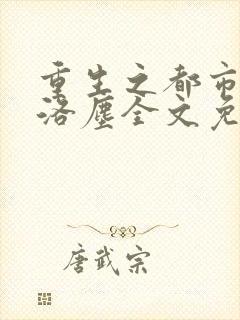 重生之都市
洛尘全文免
唐武宗